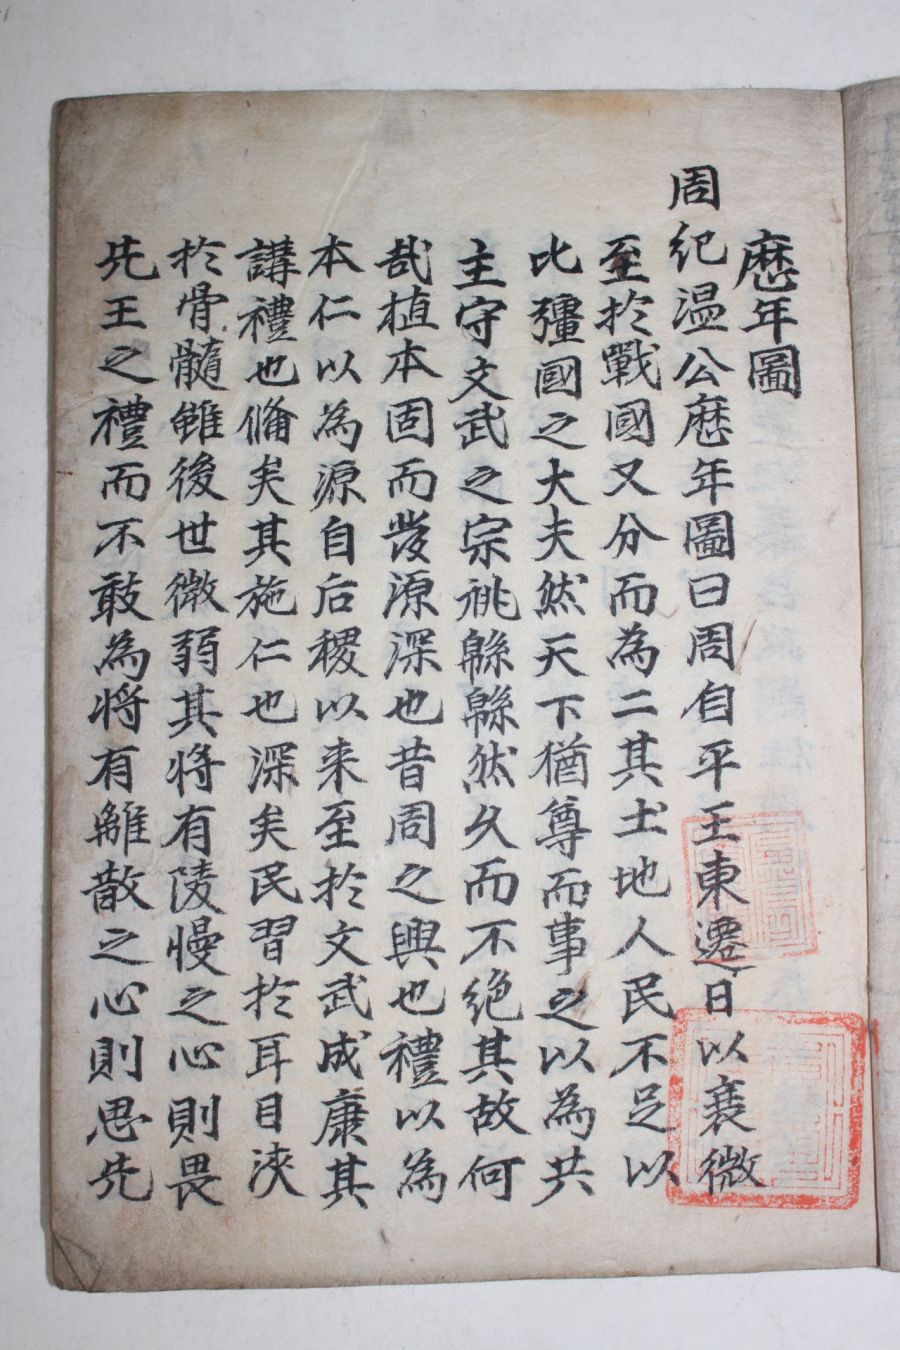 歷年圖
周紀温公歷年圖曰周自平王東遷日以衰微
至於戰國又分而為二其土地人民不足以
比彊國之大夫然天下猶尊而事之以為共
主守文武之宗祧緜緜然久而不絶其故何
哉植本固而發源深也昔周之興也禮以為
本仁以為源自后稷以来至於文武成康其
講禮也俻矣其施仁也深矣民習於耳目浹
於骨髓雖後世微弱其将有陵慢之心則畏
先王之禮而不敢為将有離散之心則思先